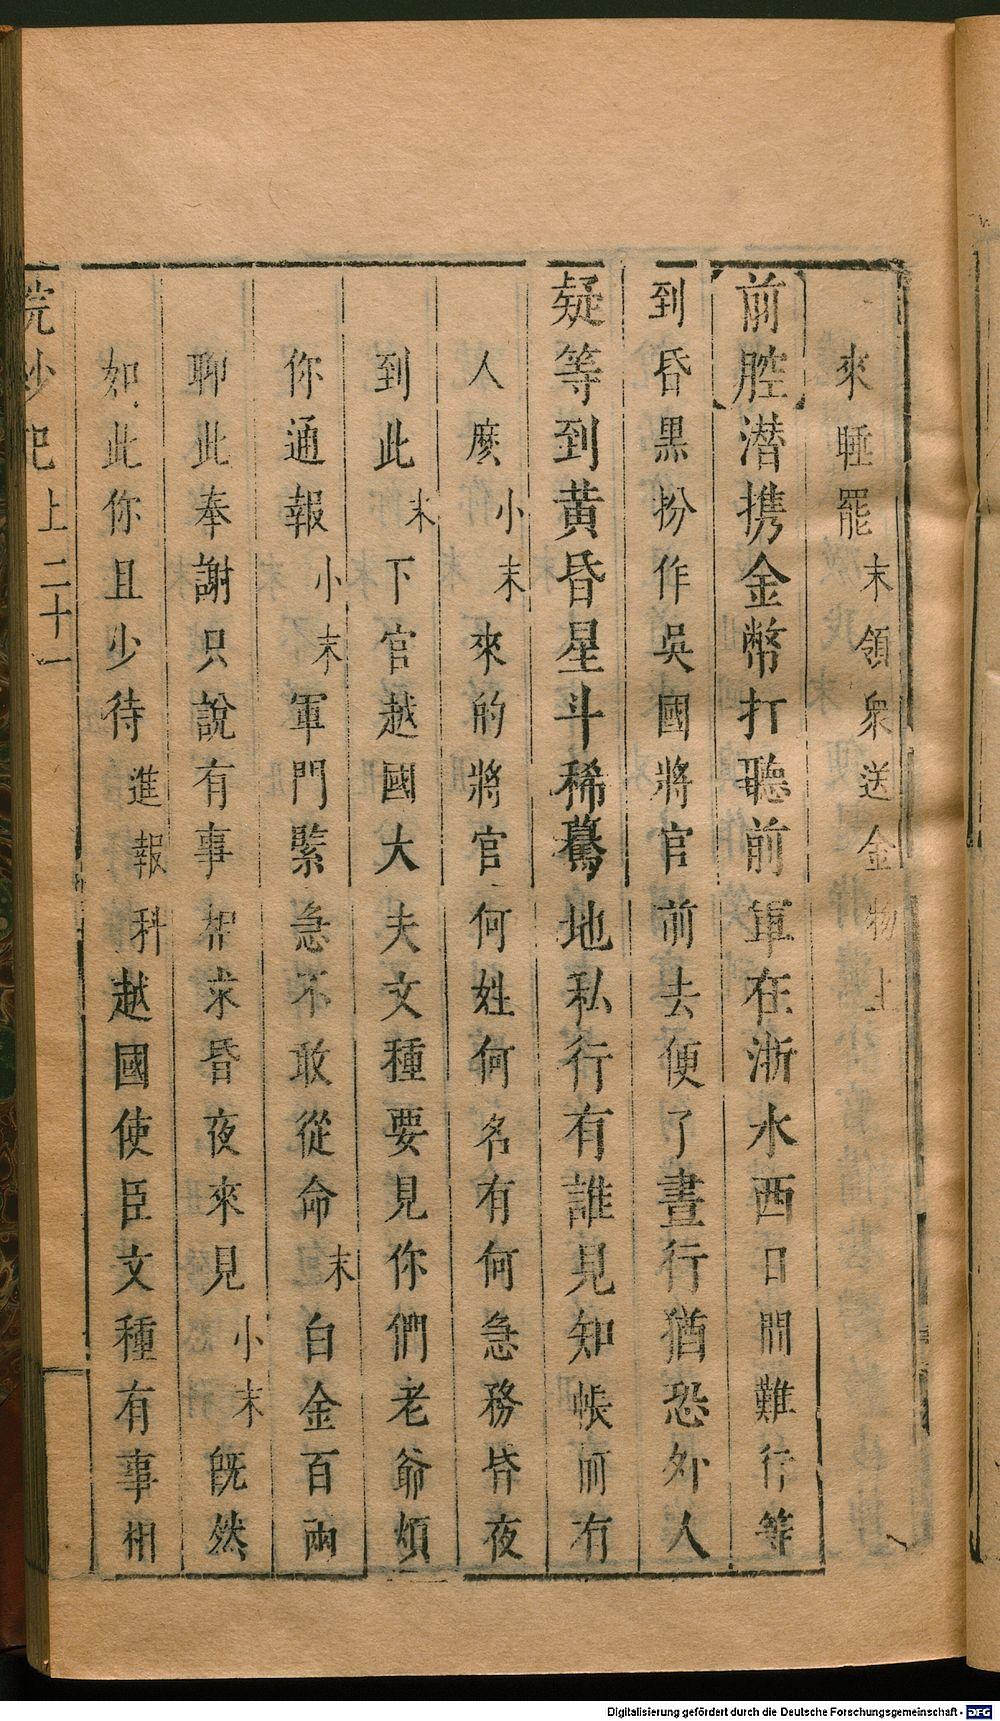 來睡罷末領衆送金物上
【前腔】潛攜金幣打聽前軍在浙水西日間難行等
到昏黑扮作吳國將官前去便了晝行猶恐外人
疑等到黃昏星斗稀驀地私行有誰見知帳前有
人麽小末來的將官何姓何名有何急務昏夜
到此末下官越國大夫文種要見你們老爺煩
你通報小末軍門緊急不敢從命末白金百兩
聊此奉謝只說有事相求昏夜來見小末旣然
如此你且少待進報科越國使臣文種有事相
浣紗記上二十一
Digitalisierung gefördert durch die Deutsche Forschungsgemeinschaft - DFG